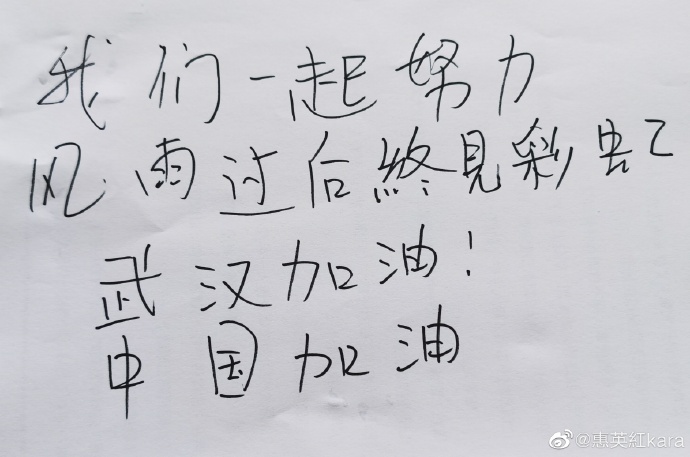 我们一起努力
风雨过后終見彩虹
武汉加油!
中国加油
@惠英紅kara